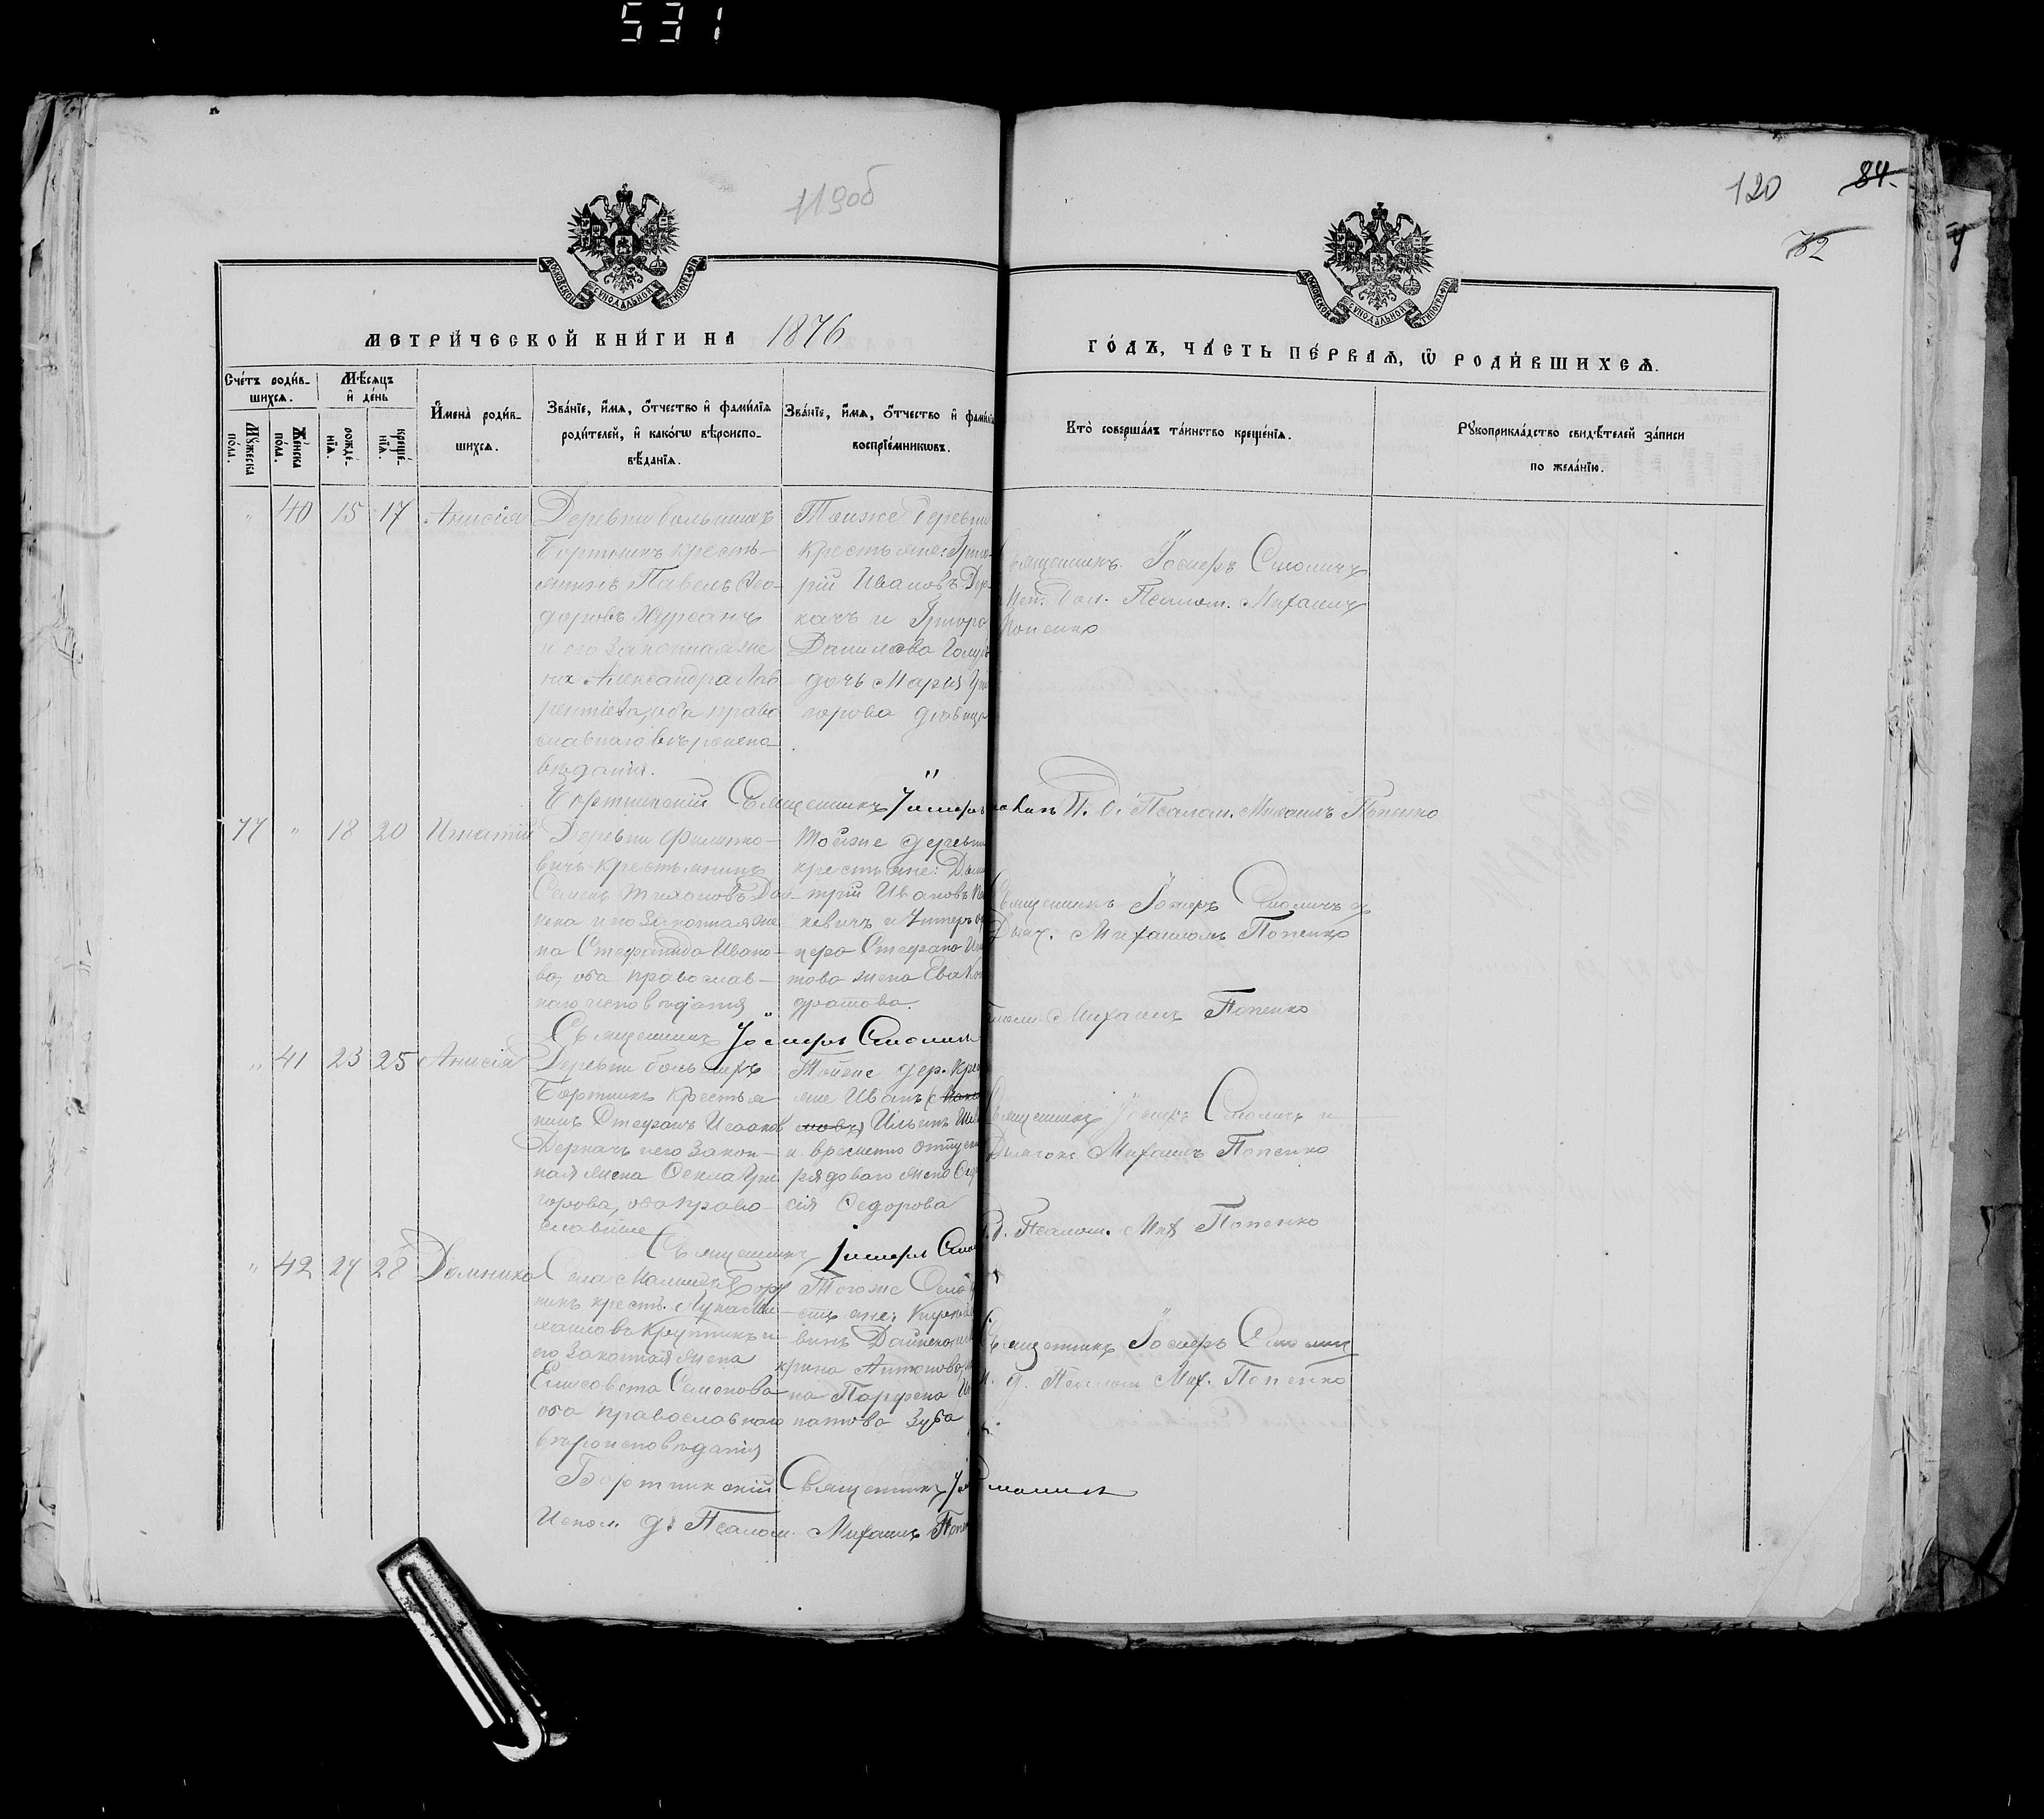 531
119об
120
84.
72
МОСКОВСКОЙ СѴНОДАЛЬНОЙ ТИПОГРАФІИ
МОСКОВСКОЙ СѴНОДАЛЬНОЙ ТИПОГРАФІИ
МЕТРИ́ЧЕСКОЙ КНИ́ГИ НА 1876
ГО́ДЪ, ЧА́СТЬ ПЕ́РВАЯ, Ѽ РОДИ́ВШИХСЯ.
Сче́тъ роди́в-
шихся.
Мѣ́сяцъ
и҆ де́нь
Мꙋ́жеска
по́ла.
Же́нска
по́ла.
рожде́-
нїя.
креще́-
нїя.
И҆мена̀ роди́в-
шихся.
Зва́нїе, и҆́мя, ѻ҆́тчество и҆ фами́лїя
роди́телей, и҆ како́гѡ вѣроиспо-
вѣ́данїя.
Зва́нїе, и҆́мя, ѻ҆́тчество и҆ фами́лїя
воспрїе́мникѡвъ.
Кто̀ соверша́лъ та́инство креще́нїя.
Рꙋкоприкла́дство свидѣ́телей за́писи
по жела́нїю.
" 40 15 17 Анисія
Деревни большихъ
Бортникъ кресть-
янинъ Павелъ Ѳео-
доровъ Хурсанъ
и его законная же
на Александра Лав
рентіева, оба право
славнаго вѣроиспо
вѣданія.
Тойже деревни
крестьяне: Григо
рій Ивановъ Дер-
качъ и Григора
Данилова
дочь Марія Гри
горова дѣвица
Священникъ Іосифъ Смоличъ
Исп. дол. Псалом. Михаилъ
Попенко
Бортникскій Священникъ Іосифъ
И. д. Псалом. Михаилъ Попенко
77 " 18 20 Игнатій
Деревни Филипко-
вичъ крестьянинъ
Семенъ Тихоновъ Дай-
нека и его законная же
на Стефанида Ивано-
ва, оба православ-
наго исповѣданія
Тойже деревни
крестьяне: Дми
трій Ивановъ
кевичъ и Унтеръ оф
цера Стефана Иг
това жена Ева Кон
дратова.
Священникъ Іосифъ Смоличъ съ
Дьяч. Михаиломъ Попенко
Священникъ Іосифъ Смоличъ
Михаилъ Попенко
" 41 23 25 Анисія
Деревни большихъ
Бортникъ крестья
нинъ Стефанъ Исааков
Деркачъ и его закон-
ная жена Ѳекла Гри
горова, оба право-
славные
Тойже дер. кре
яне Иванъ
Ильинъ
и временно отпуск
рядоваго жена
сія Ѳедорова
Священникъ Іосифъ Смоличъ и
Дьячокъ Михаилъ Попенко
Священникъ Іосифъ Смол
И. д. Псалом. Мих Попенко
" 42 27 28 Домника
Села Малыхъ Борт
никъ крест. Лука Ми-
хаиловъ Крупникъ и
его законная жена
Елисовета Семенова
оба православнаго
вѣроисповѣданія
Тогоже Села
стьяне:
винъ Дайнека,
крина Антонова,
на Парфена Иг
натова Зуба
Священникъ Іосифъ Смолич
И. д. Псалом Мих. Попенко
Бортникскій Священникъ Іо Смоличъ
Испол. д. Псалом. Михаилъ Попен